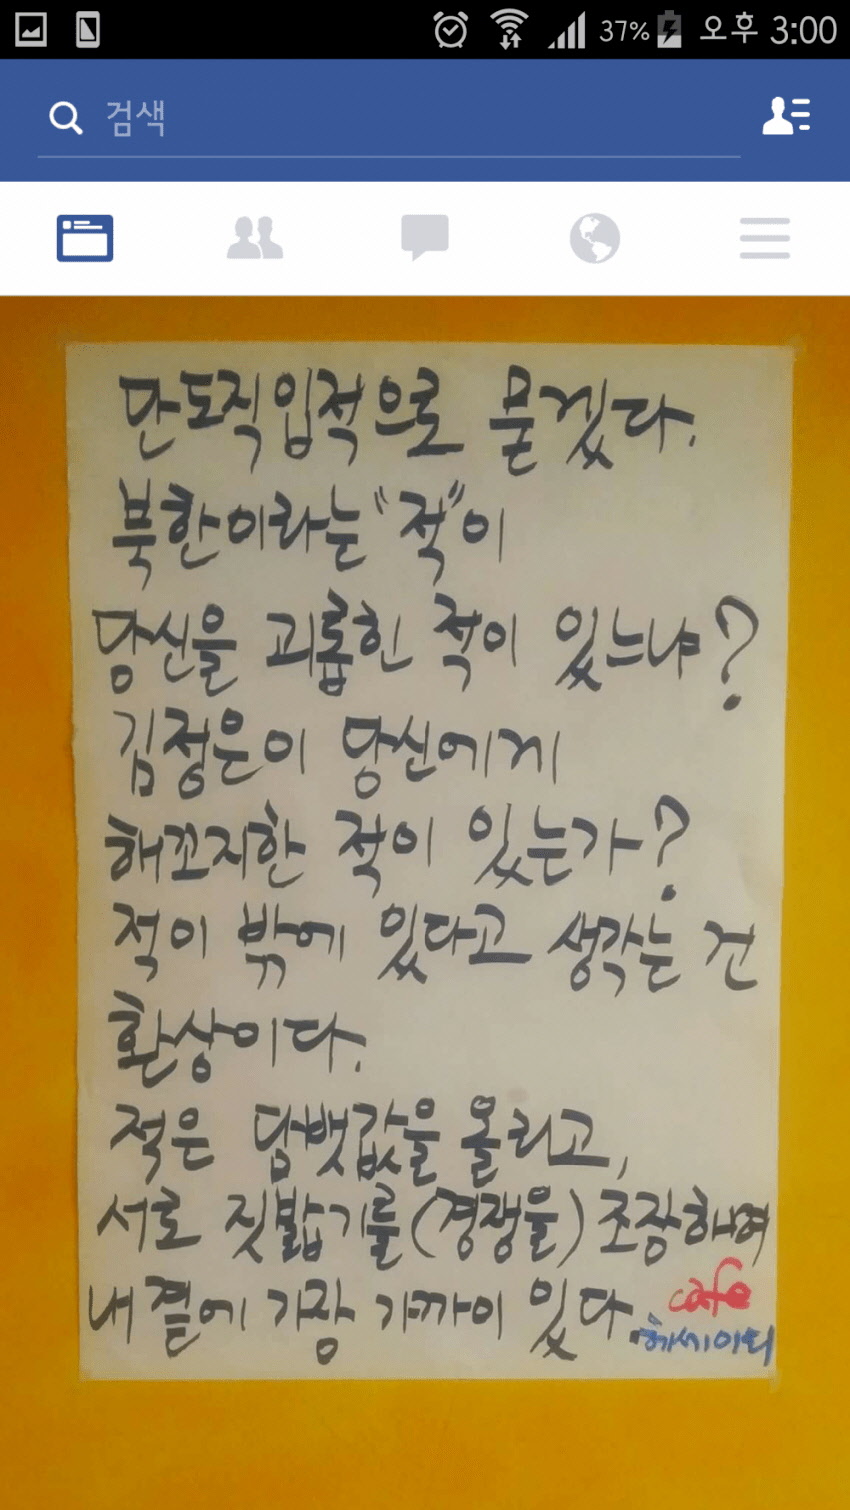 37% 오후 3:00
검색
단도직입적으로 묻겠다.
북한이라는 "적"이
당신을 괴롭힌 적이 있느냐?
김정은이 당신에게
해꼬지한 적이 있는가?
적이 밖에 있다고 생각는 건
환상이다.
적은 담뱃값을 올리고,
서로 짓밟기를(경쟁을) 조장하며
내 곁에 가장 가까이 있다.
cafe
헤세이티